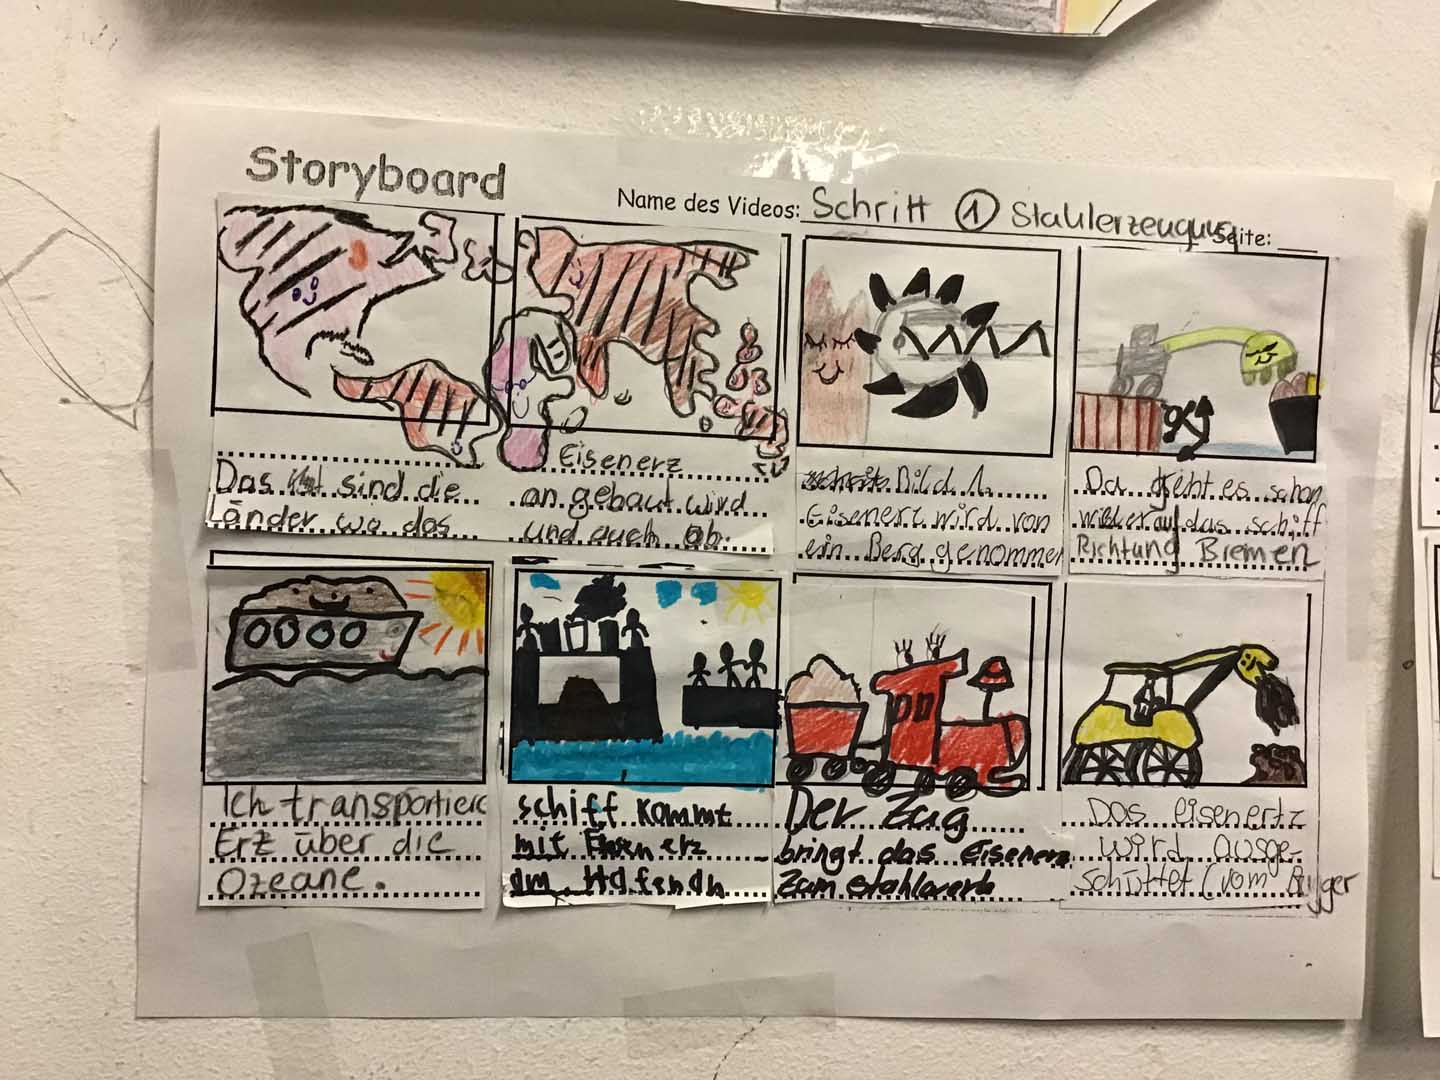 Storyboard
Name des Videos: Schritt ① Stahlerzeugung Seite:
Das sind die
Länder wo das
Eisenerz
an gebaut wird
und auch ab.
Bild 1.
Eisenerz wird von
ein Berg genommen
Da geht es schon
wieder auf das schiff
Richtung Bremen
Ich transportiere
Erz über die
Ozeane.
schiff kommt
mit erz
am Hafen
Der Zug
bringt das Eisenerz
Zum stahlwerk
Das eisenertz
wird ausge-
schüttet (vom Bagger